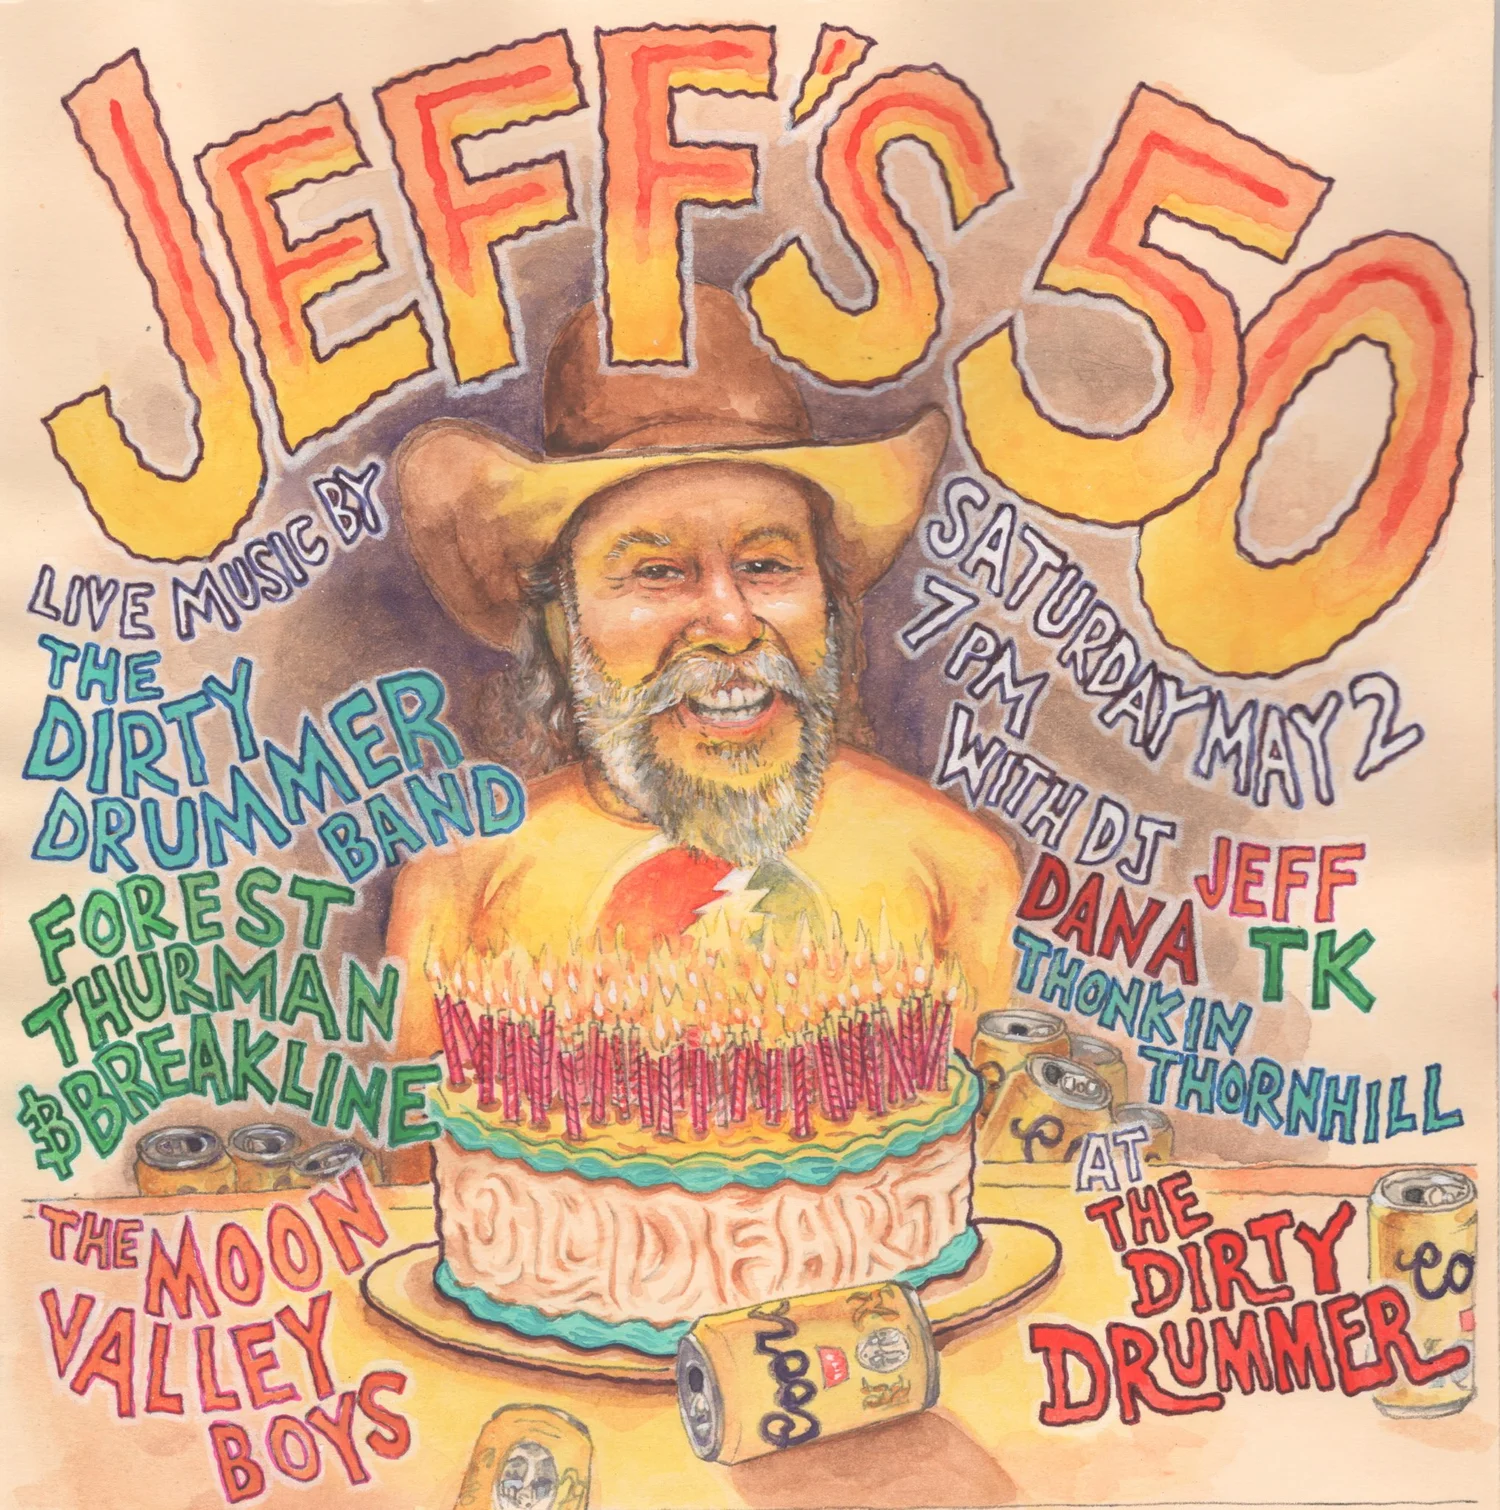 JEFF'S 50
LIVE MUSIC BY
THE
DIRTY
DRUMMER
BAND
FOREST
THURMAN
$ BREAKLINE
THE MOON
VALLEY
BOYS
SATURDAY MAY 2
7 PM
WITH DJ JEFF
DANA TK
THONKIN
THORNHILL
AT
THE
DIRTY
DRUMMER
OLD FART
Coo